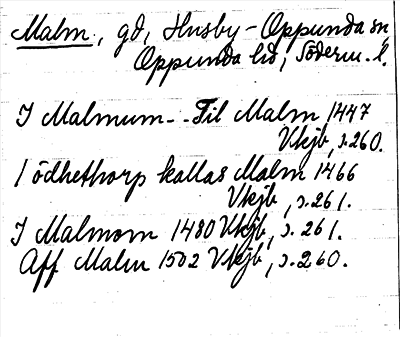 Malm, gd, Husby-Oppunda sn,
Oppunda hd, Söderm. l.
I Malmum - - Til Malm 1447
Vkjb, s. 260.
I ödhethorp kallas Malm 1466
Vkjb, s. 261.
I Malmom 1480 Vkjb, s. 261.
Aff Malm 1502 Vkjb, s. 260.